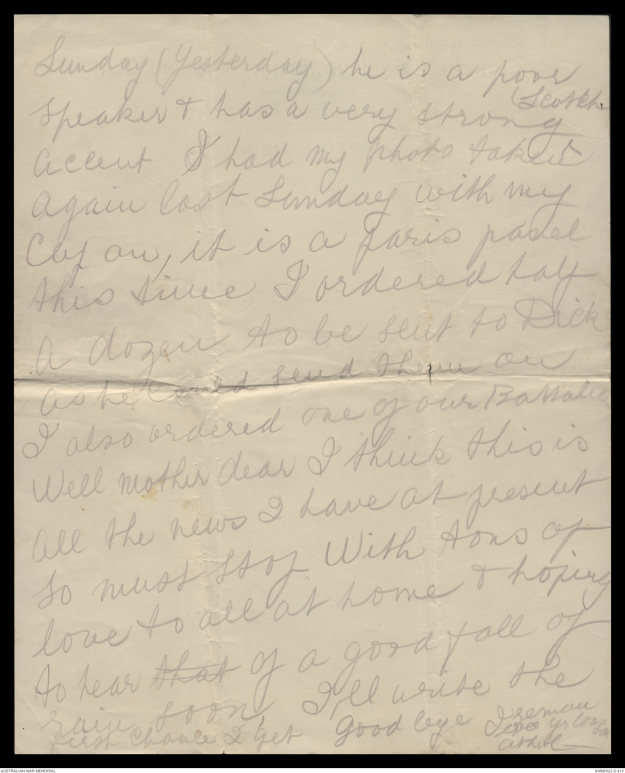 Sunday (Yesterday) he is a poor
speaker & has a very strong (Scotch.
accent I had my photo taken
again last Sunday with my
Cap on, it is a paris panel
this time I ordered half
a dozen to be sent to Dick
as he could send them on
I also ordered one of our Battalion
Well mother dear I think this is
all the news I have at present
so must stop With tons of
love to all at home & hoping
to hear that of a good fall of
rain soon, I'll write the
first chance I get Good bye I remain
AUSTRALIAN WAR MEMORIAL